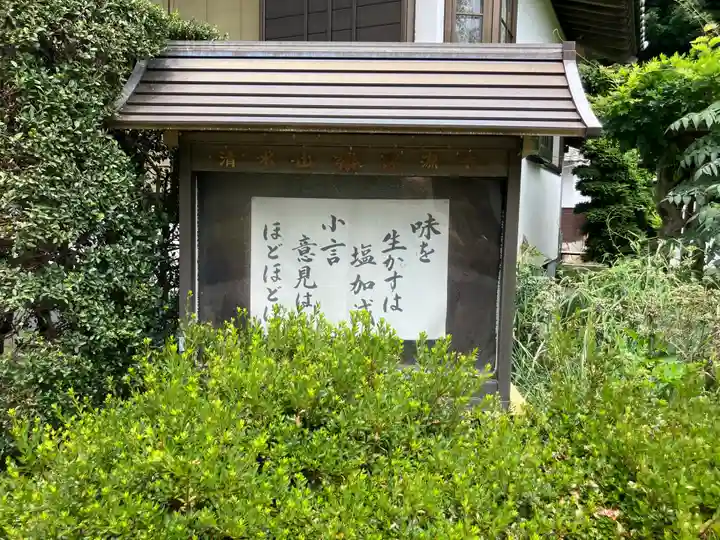 味を
生かすは
塩加
小言
意見は
ほどほど
清水山